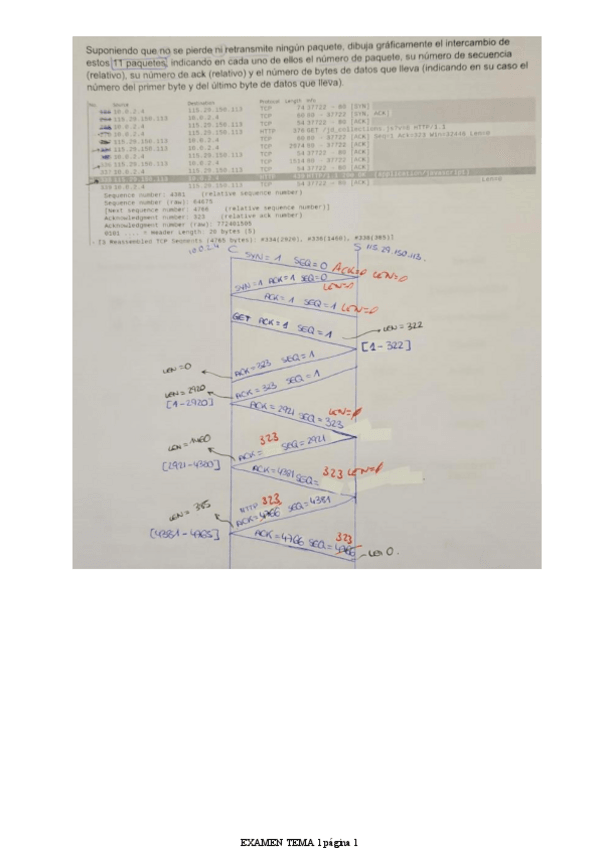 Suponiendo que no se pierde ni retransmite ningún paquete, dibuja gráficamente el intercambio de
estos 11 paquetes, indicando en cada uno de ellos el número de paquete, su número de secuencia
(relativo), su número de ack (relativo) y el número de bytes de datos que lleva (indicando en su caso el
número del primer byte y del último byte de datos que lleva).
No. Source Destination Protocol Length Info
10.0.2.4 115.29.150.113 TCP 74 37722 → 80 [SYN]
115.29.150.113 10.0.2.4 TCP 60 80 → 37722 [SYN, ACK]
10.0.2.4 115.29.150.113 TCP 54 37722 → 80 [ACK]
10.0.2.4 115.29.150.113 HTTP 376 GET
115.29.150.113 10.0.2.4 TCP 60 80 → 37722 [ACK] Seq=1 Ack=323 Win=32448 Len=0
115.29.150.113 10.0.2.4 TCP 2974 80 → 37722 [ACK]
10.0.2.4 115.29.150.113 TCP 54 37722 → 80 [ACK]
336 115.29.150.113 10.0.2.4 TCP 1514 80 → 37722 [ACK]
337 10.0.2.4 115.29.150.113 TCP 54 37722 → 80 [ACK]
339 10.0.2.4 115.29.150.113 TCP 54 37722 → 80 [ACK] Len=0
Sequence number: 4381 (relative sequence number)
Sequence number (raw): 64675
[Next sequence number: 4766 (relative sequence number)]
Acknowledgment number: 323 (relative ack number)
Acknowledgment number (raw): 772481505
0101 .... = Header Length: 20 bytes (5)
[3 Reassembled TCP Segments (4765 bytes): #334(2920), #336(1460), #338(385)]
10.0.2.4 C S 115.29.150.113.
SYN=1 SEQ=0 ACK=0 LEN=0
SYN=1 ACK=1 SEQ=0
LEN=0
ACK=1 SEQ=1 LEN=0
GET ACK=1 SEQ=1 LEN=322
[1-322]
LEN=0 ACK=323 SEQ=1
LEN=2920 ACK=323 SEQ=1
[1-2920] ACK=2921 SEQ=323 LEN=0
LEN=1460 ACK= 323 SEQ=2921
[2921-4380] ACK=4381 SEQ= 323 LEN=0
LEN=385 HTTP 323
ACK=4766 SEQ=4381
[4381-4765] ACK=4766 SEQ=4766 323
LEN 0.
EXAMEN TEMA 1 página 1